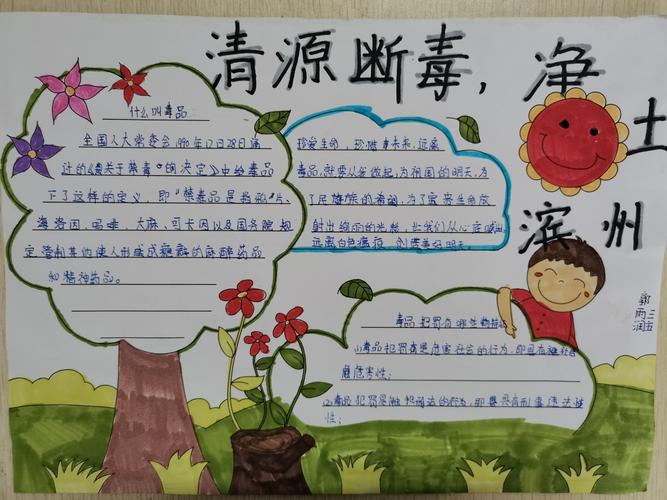 清源断毒，净
土
滨州
什么叫毒品
全国人大常委会1990年12月28日通
过的《关于禁毒的决定》中给毒品
下了这样的定义，即"禁毒品是指鸦片、
海洛因、吗啡、大麻、可卡因以及国务院规
定管制其他使人形成瘾癖的麻醉药品
和精神药品。
珍爱生命，珍惜未来，远离
毒品，就要从爸做起，为祖国的明天，为
了民族的希望，为了宝贵生命放
射出绚丽的光彩，让我们从心底喊出
远离白色瘟疫，创造美好明天。
毒品犯罪有哪些特
(1)毒品犯罪是危害社会的行为，即具有
危害性；
(2)毒品犯罪是触犯刑法的行为，即具有刑事违法
性；
三五
郭雨润